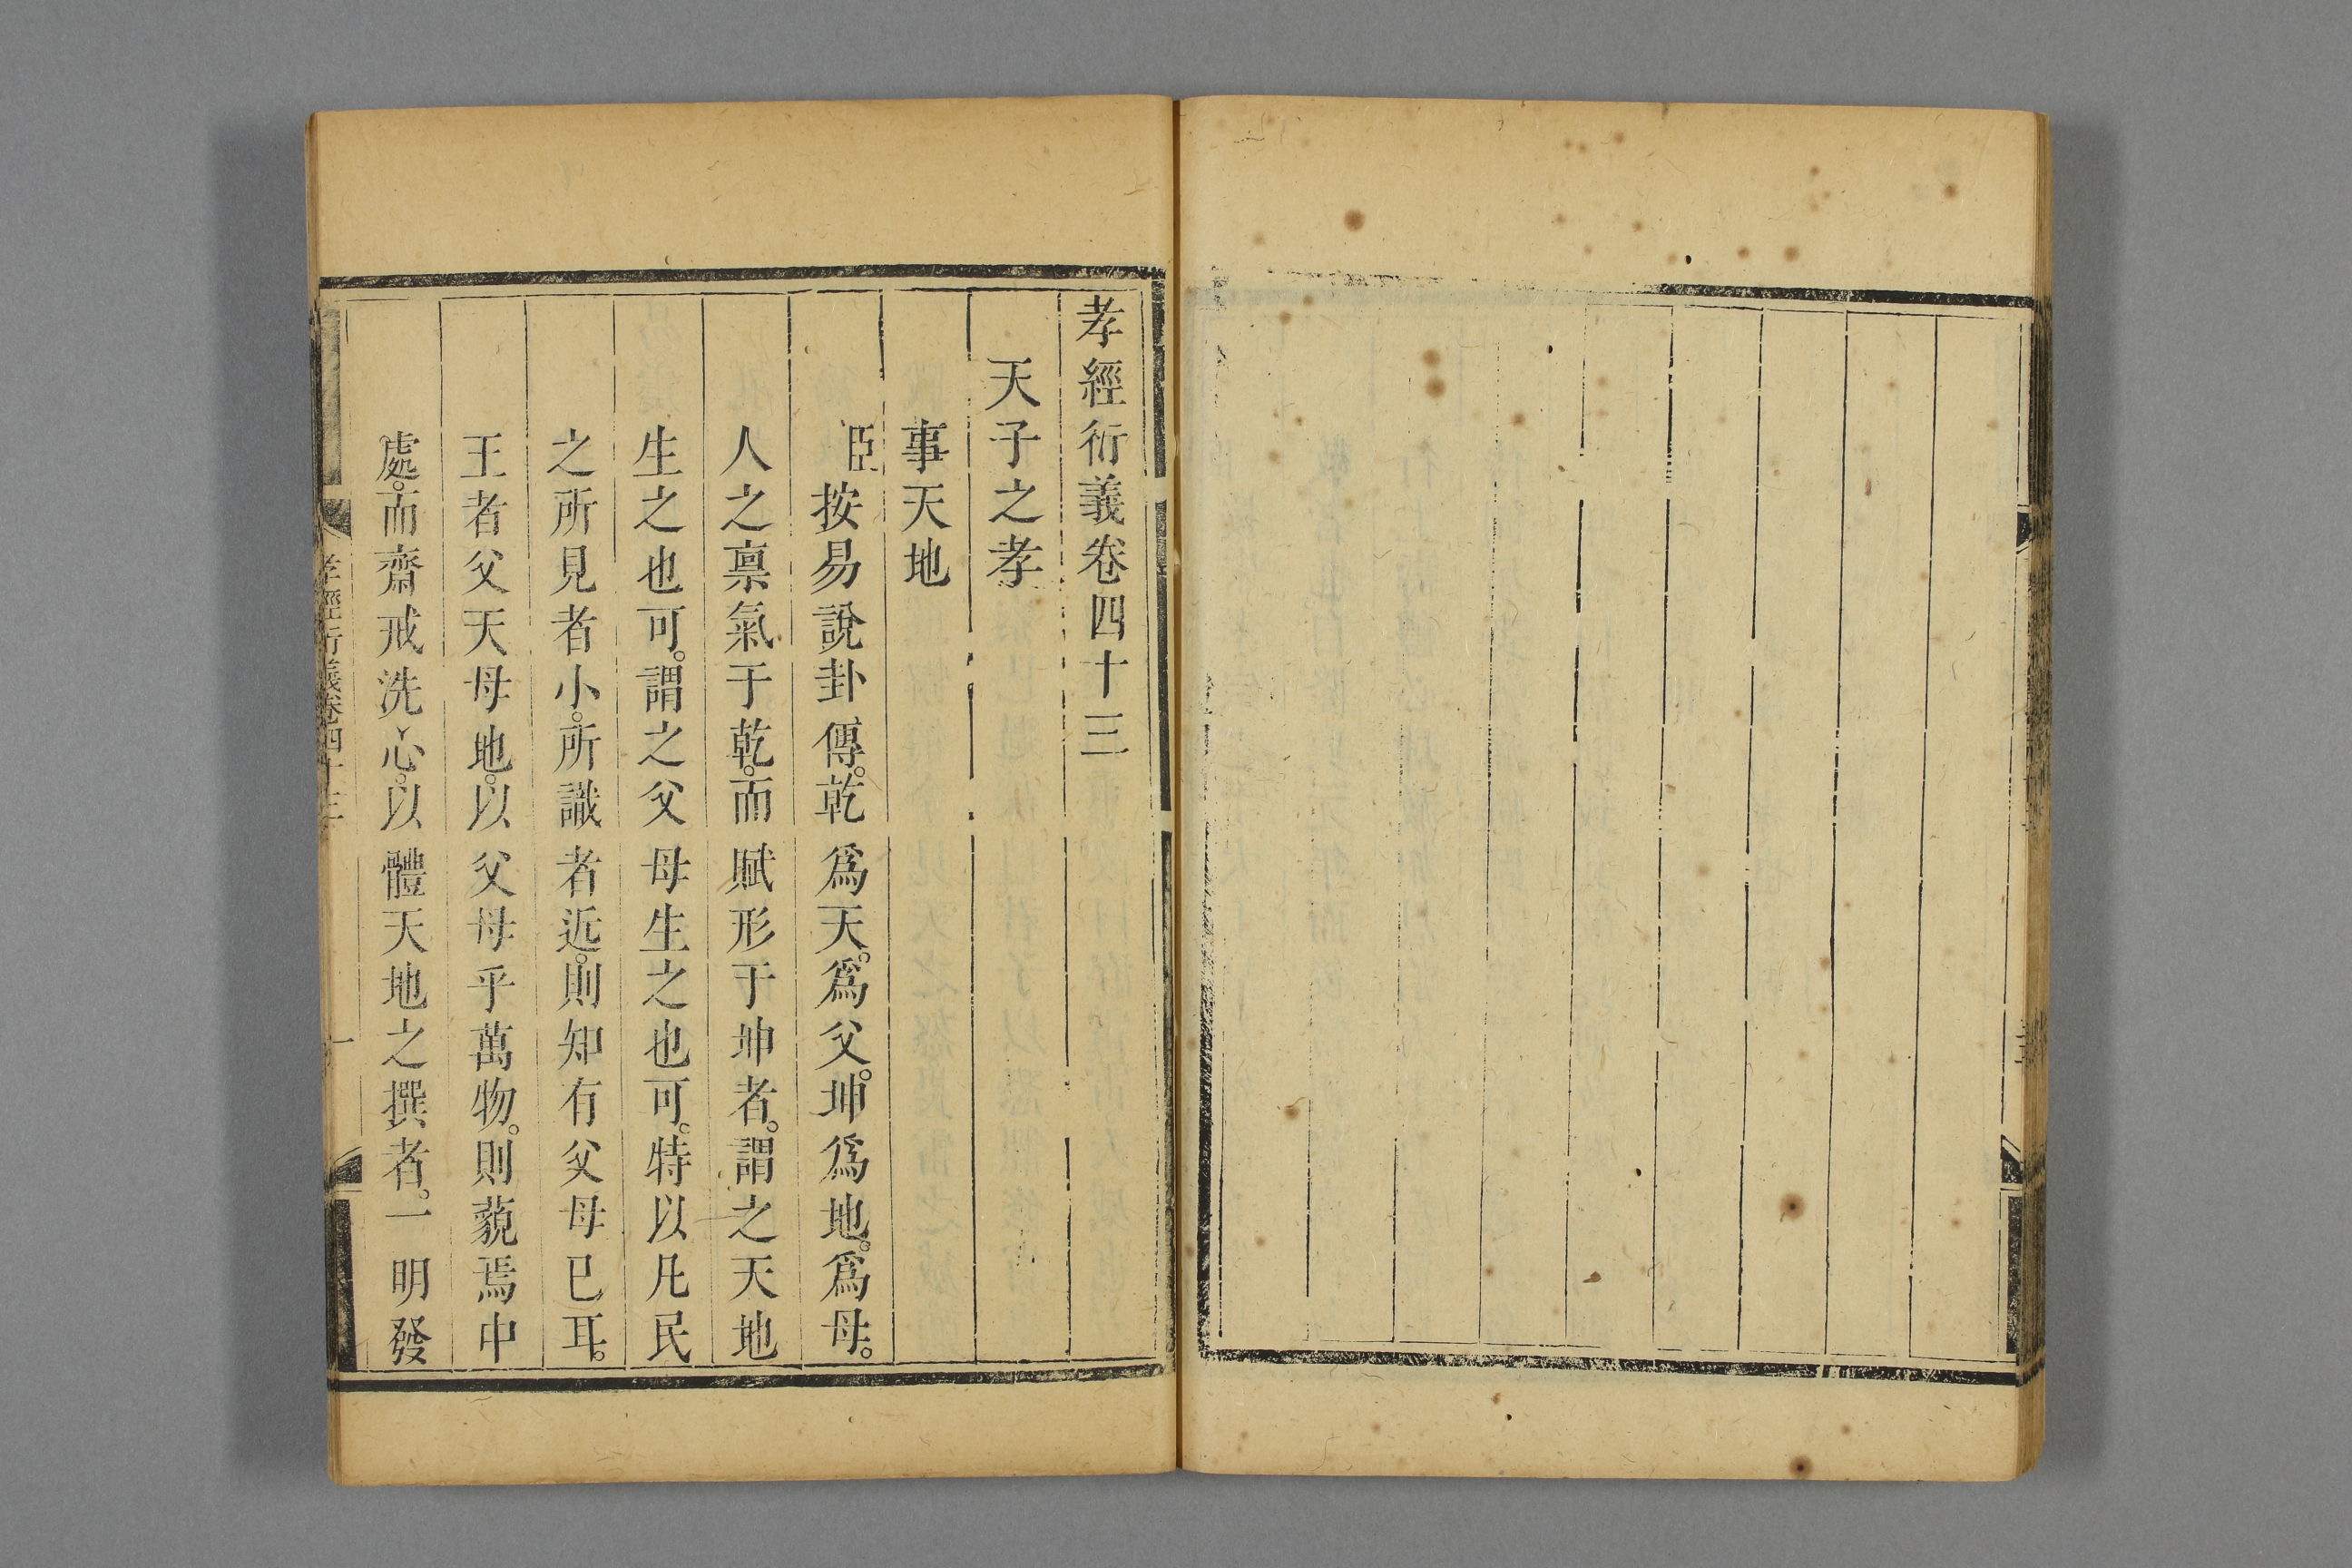 孝經衍義卷四十三
天子之孝
事天地
臣按易說卦傳。乾爲天。爲父。坤爲地。爲母。
人之禀氣于乾。而賦形于坤者。謂之天地
生之也可。謂之父母生之也可。特以凡民
之所見者小。所識者近。則知有父母已耳。
王者父天母地。以父母乎萬物。則藐焉中
處。而齋戒洗心。以體天地之撰者。一明發
孝經衍義卷四十三
一